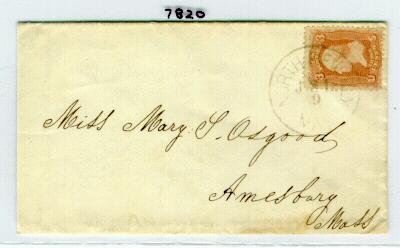 7820
3 3
U S
NORTH
9
Miss Mary S. Osgood
Amesbury
Mass